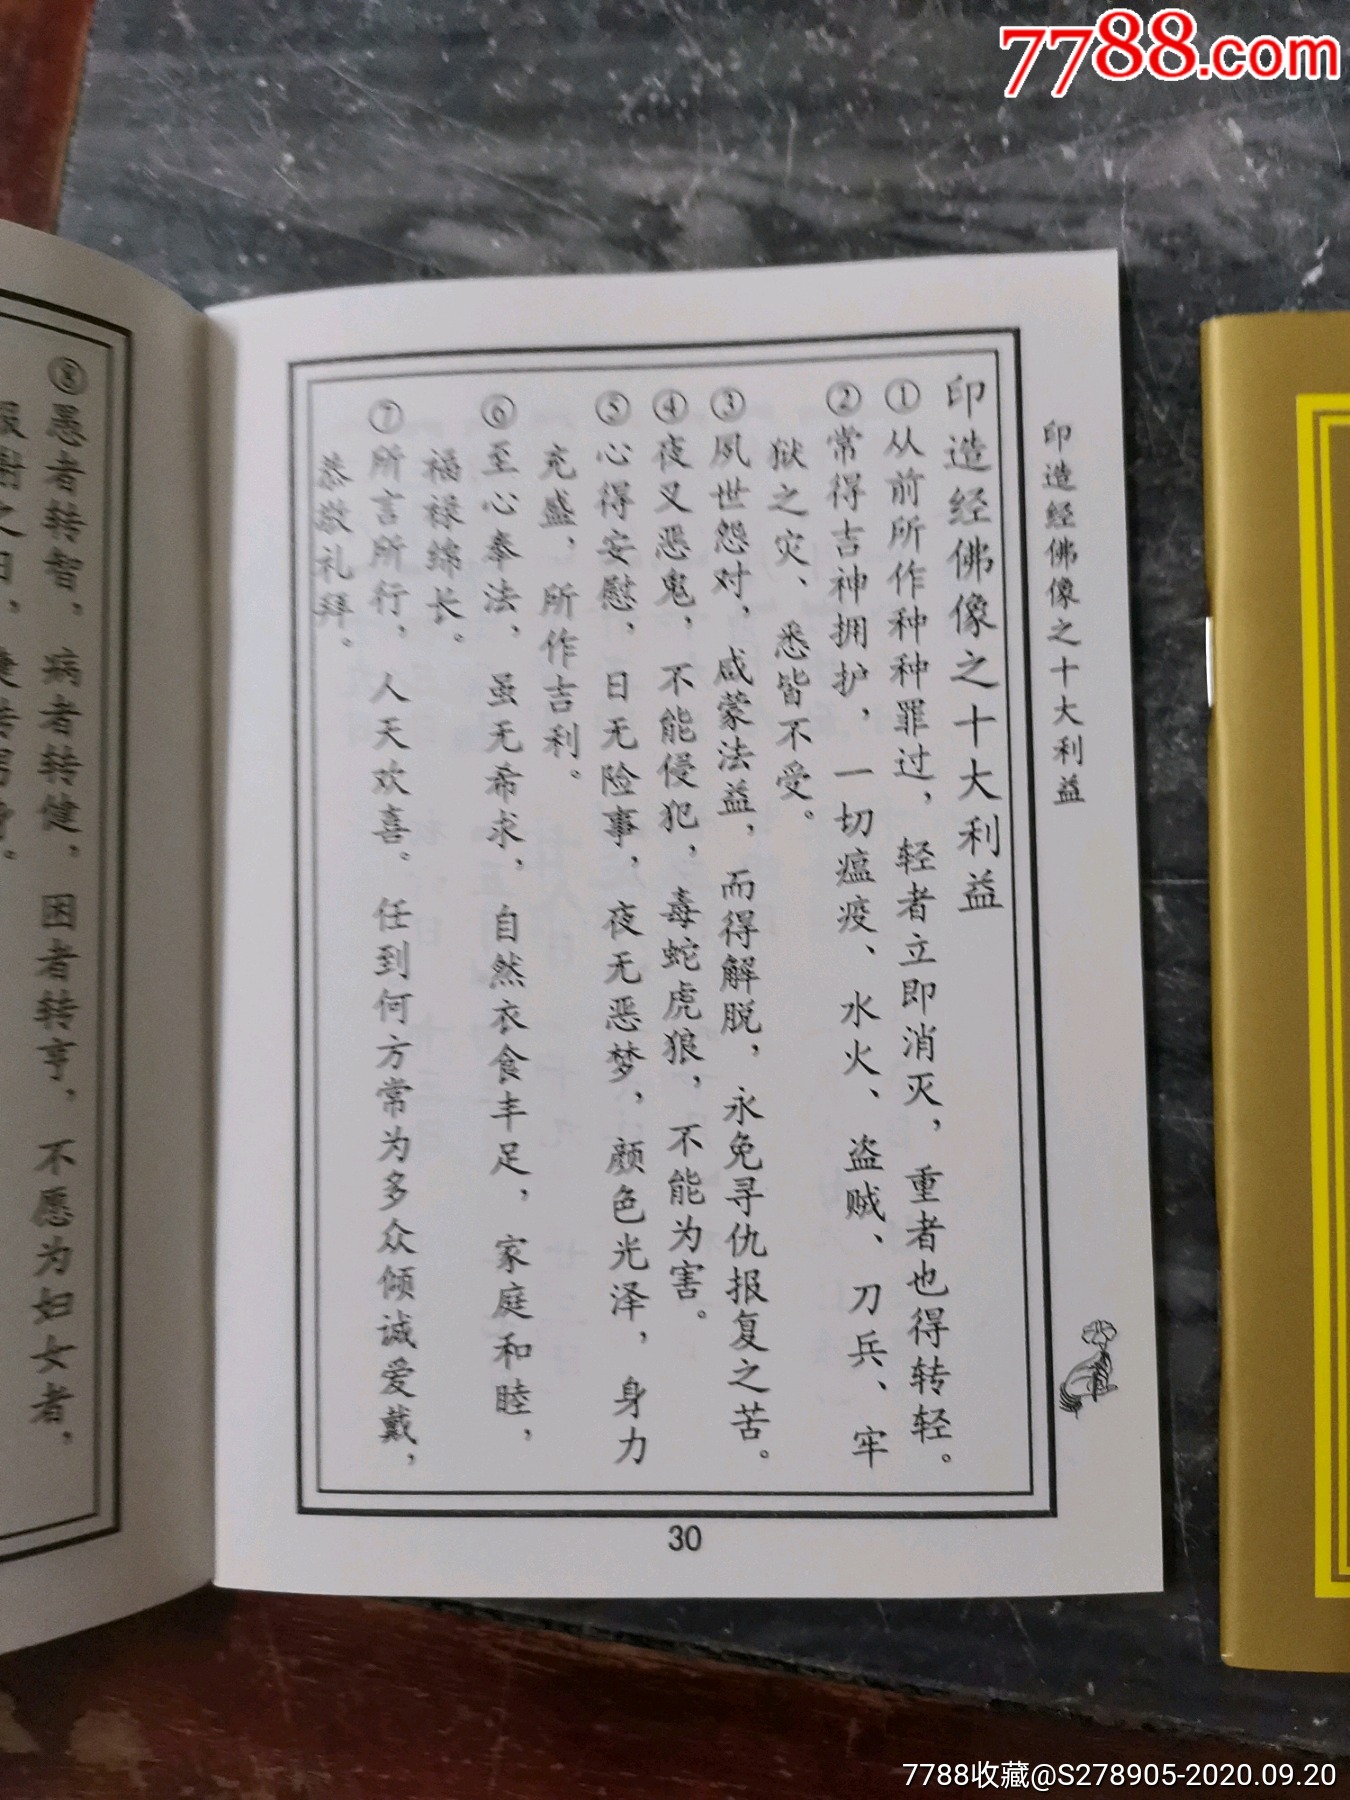 7788.com
印造经佛像之十大利益
印造经佛像之十大利益
①从前所作种种罪过，轻者立即消灭，重者也得转轻。
②常得吉神拥护，一切瘟疫、水火、盗贼、刀兵、牢
狱之灾、悉皆不受。
③夙世怨对，咸蒙法益，而得解脱，永免寻仇报复之苦。
④夜叉恶鬼，不能侵犯，毒蛇虎狼，不能为害。
⑤心得安慰，日无险事，夜无恶梦，颜色光泽，身力
充盛、所作吉利。
⑥至心奉法，虽无希求，自然衣食丰足，家庭和睦，
福禄绵长。
⑦所言所行，人天欢喜。任到何方常为多众倾诚爱戴，
恭敬礼拜。
30
⑧愚者转智，病者转健，困者转亨，不愿为妇女者，
报谢之日，捷转男身。
7788收藏@S278905-2020.09.20